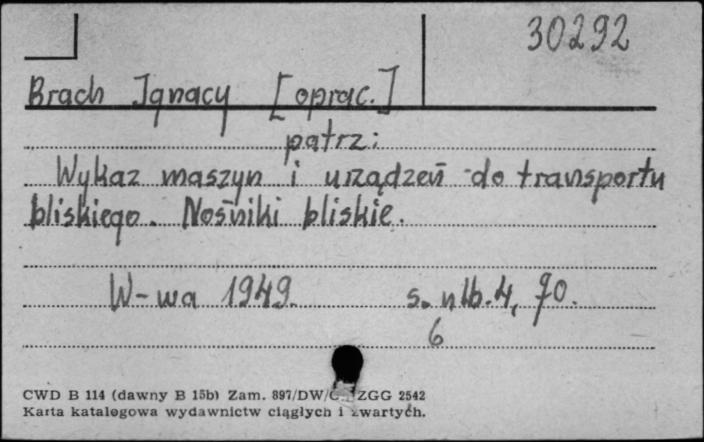 30292
Brach Ignacy [oprac.]
patrz:
Wykaz maszyn i urządzeń do transportu
bliskiego. Nośniki bliskie.
W-wa 1949. s. nlb. 4, 70.
6
CWD B 114 (dawny B 15b) Zam. 897/DW/ ZGG 2542
Karta katalogowa wydawnictw ciągłych i zwartych.